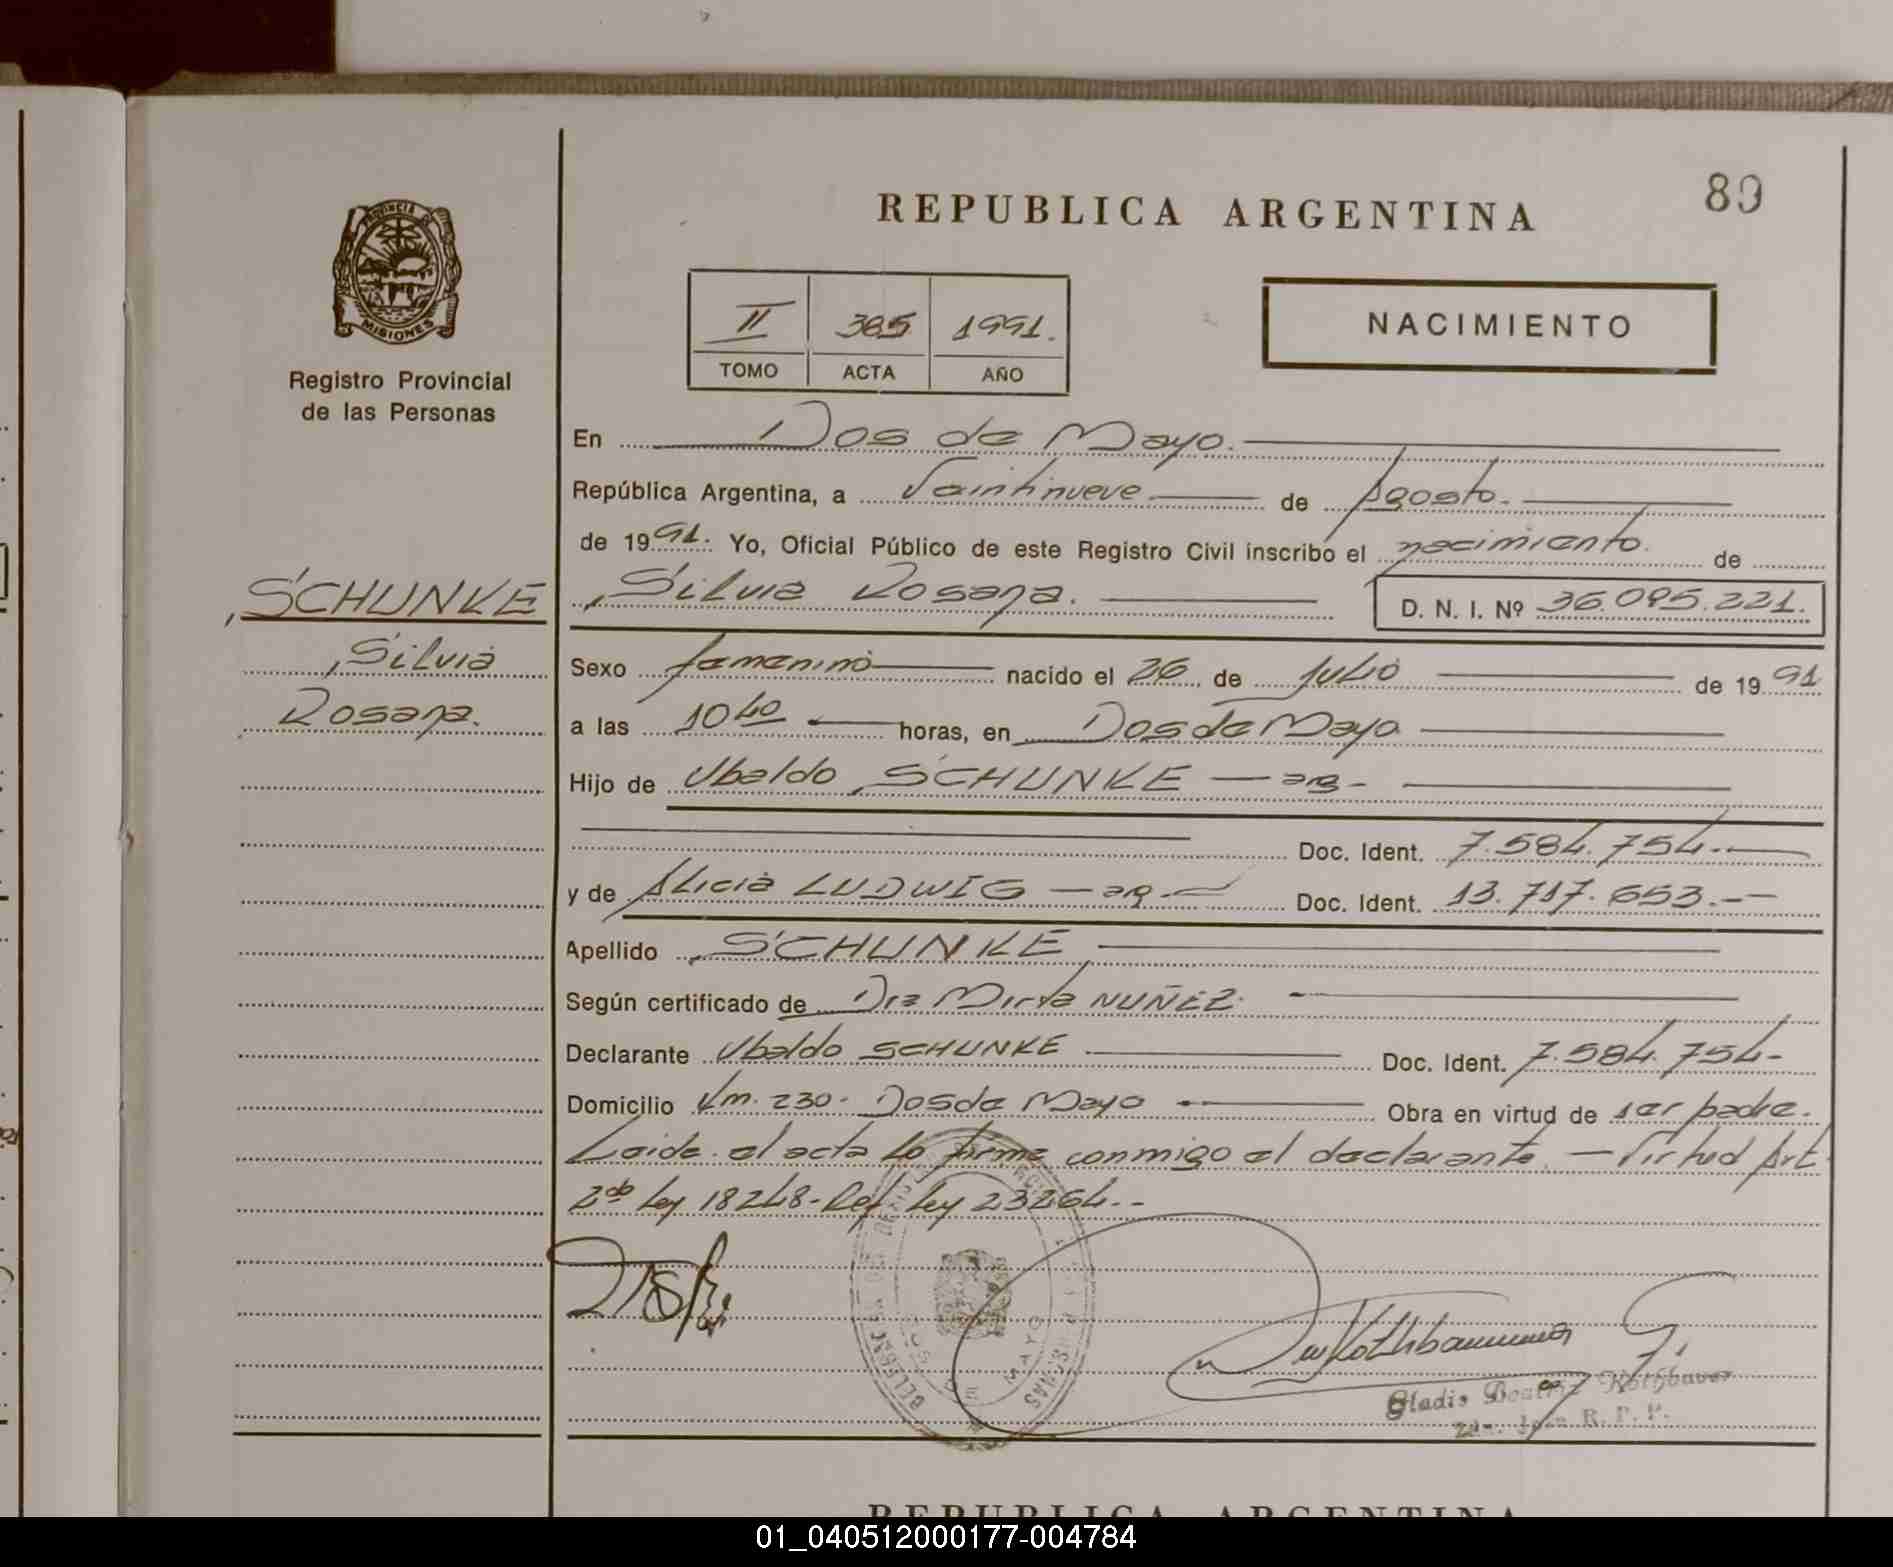 89
REPUBLICA ARGENTINA
PROVINCIA DE
MISIONES
Registro Provincial
de las Personas
II 385 1991.
TOMO ACTA AÑO
NACIMIENTO
En Dos de Mayo.
República Argentina, a Veintinueve de Agosto.
de 1991. Yo, Oficial Público de este Registro Civil inscribo el nacimiento. de
SCHUNKE
Silvia
Rosana.
Silvia Rosana. D. N. I. Nº 36.095.221.
Sexo femenino nacido el 26 de Julio de 1991
a las 10 40 horas, en Dos de Mayo
Hijo de Ubaldo SCHUNKE — arg -
Doc. Ident. 7.584.754.-
y de Alicia LUDWIG — arg.- Doc. Ident. 13.717.653.-
Apellido SCHUNKE
Según certificado de Dra Mirta NUÑEZ.
Declarante Ubaldo SCHUNKE Doc. Ident. 7.584.754-
Domicilio Km. 230 - Dos de Mayo Obra en virtud de ser padre.
Leida el acta la firma conmigo el declarante. — Virtud Art.
2do Ley 18248- Ref Ley 23264.-
DOS DE MAYO
Rothbauer G.
Gladis Beatriz Rothbauer
R. P. P.
REPUBLICA ARGENTINA
01_040512000177-004784